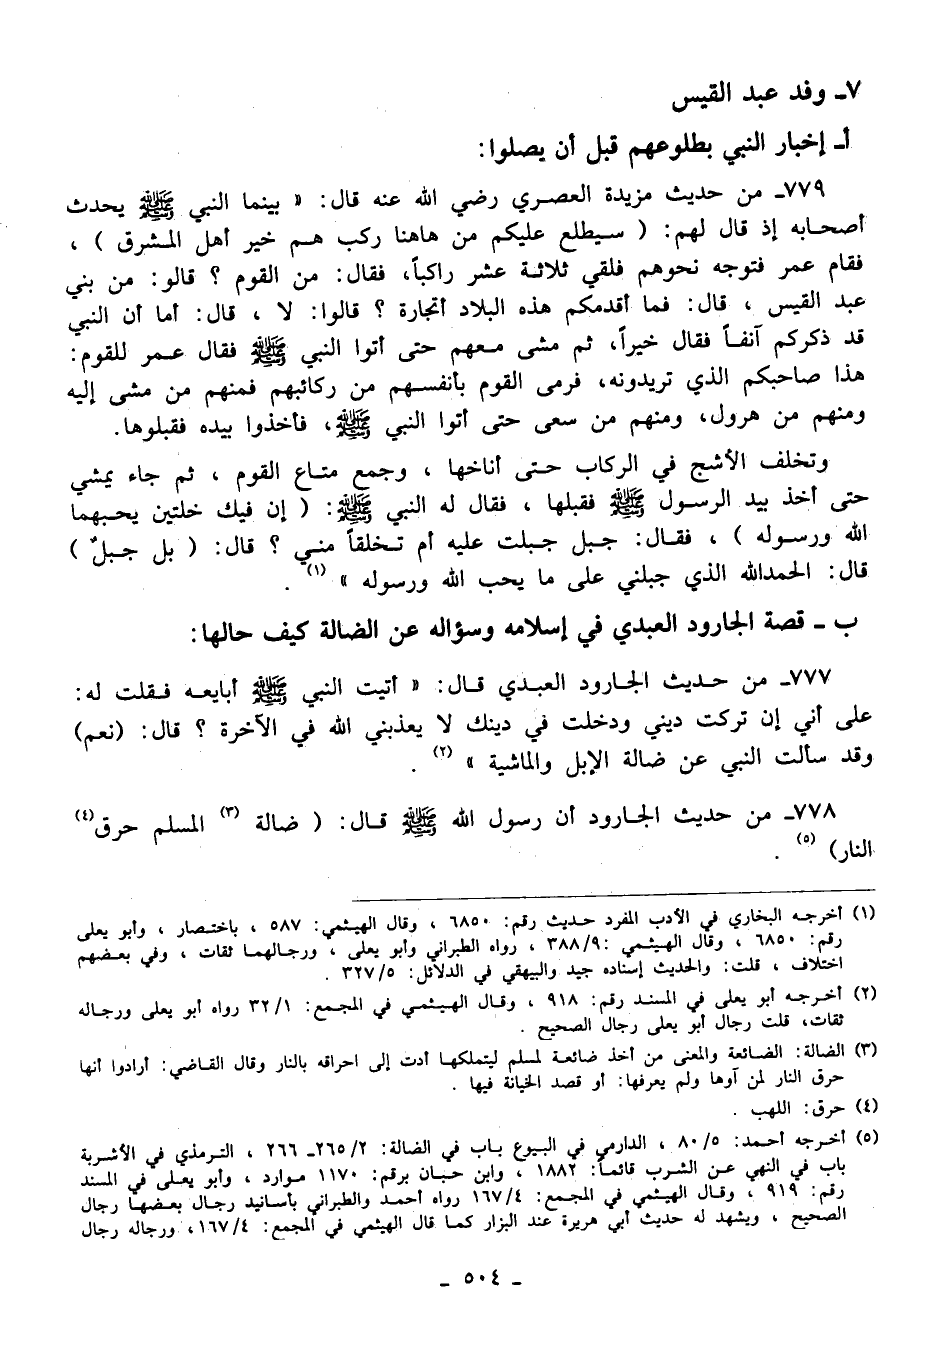 ٧ـ وفد عبد القيس
أـ إخبار النبي بطلوعهم قبل أن يصلوا:
٧٧٩ـ من حديث مزيدة العصري رضي الله عنه قال: « بينما النبي ﷺ يحدث
أصحابه إذ قال لهم: ( سيطلع عليكم من هاهنا ركب هم خير أهل المشرق ) ،
فقام عمر فتوجه نحوهم فلقي ثلاثة عشر راكباً، فقال: من القوم ؟ قالو: من بني
عبد القيس ، قال: فما أقدمكم هذه البلاد أتجارة ؟ قالوا: لا ، قال: أما أن النبي
قد ذكركم آنفاً فقال خيراً، ثم مشى معهم حتى أتوا النبي ﷺ فقال عمر للقوم:
هذا صاحبكم الذي تريدونه، فرمى القوم بأنفسهم من ركائبهم فمنهم من مشى إليه
ومنهم من هرول، ومنهم من سعى حتى أتوا النبي ﷺ، فأخذوا بيده فقبلوها.
وتخلف الأشج في الركاب حتى أناخها ، وجمع متاع القوم ، ثم جاء يمشي
حتى أخذ بيد الرسول ﷺ فقبلها ، فقال له النبي ﷺ: ( إن فيك خلتين يحبهما
الله ورسوله ) ، فقال: جبل جبلت عليه أم تخلقاً مني ؟ قال: ( بل جبلٌ )
قال: الحمدالله الذي جبلني على ما يحب الله ورسوله » (١) .
ب ـ قصة الجارود العبدي في إسلامه وسؤاله عن الضالة كيف حالها:
٧٧٧ـ من حديث الجارود العبدي قال: « أتيت النبي ﷺ أبايعه فقلت له:
على أني إن تركت ديني ودخلت في دينك لا يعذبني الله في الآخرة ؟ قال: (نعم)
وقد سألت النبي عن ضالة الإبل والماشية » (٢) .
٧٧٨ـ من حديث الجارود أن رسول الله ﷺ قال: ( ضالة (٣) المسلم حرق(٤)
النار) (٥) .
(١) أخرجه البخاري في الأدب المفرد حديث رقم: ٦٨٥٠ ، وقال الهيثمي: ٥٨٧ ، باختصار ، وأبو يعلى
رقم: ٦٨٥٠ ، وقال الهيثمي :٣٨٨/٩ ، رواه الطبراني وأبو يعلى ، ورجالهما ثقات ، وفي بعضهم
اختلاف ، قلت: والحديث إسناده جيد والبيهقي في الدلائل: ٣٢٧/٥ .
(٢) أخرجه أبو يعلى في المسند رقم: ٩١٨ ، وقال الهيثمي في المجمع: ٣٢/١ رواه أبو يعلى ورجاله
ثقات، قلت رجال أبو يعلى رجال الصحيح .
(٣) الضالة: الضائعة والمعنى من أخذ ضائعة لمسلم ليتملكها أدت إلى احراقه بالنار وقال القاضي: أرادوا أنها
حرق النار لمن آوها ولم يعرفها: أو قصد الخيانة فيها .
(٤) حرق: اللهب .
(٥) أخرجه أحمد: ٨٠/٥ ، الدارمي في البيوع باب في الضالة: ٢٦٥/٢ـ ٢٦٦ ، الترمذي في الأشربة
باب في النهي عن الشرب قائماً: ١٨٨٢ ، وابن حبان برقم: ١١٧٠ موارد ، وأبو يعلى في المسند
رقم: ٩١٩ ، وقال الهيثمي في المجمع: ١٦٧/٤ رواه أحمد والطبراني بأسانيد رجال بعضها رجال
الصحيح ، ويشهد له حديث أبي هريرة عند البزار كما قال الهيثمي في المجمع: ١٦٧/٤، ورجاله رجال
ـ ٥٠٤ ـ